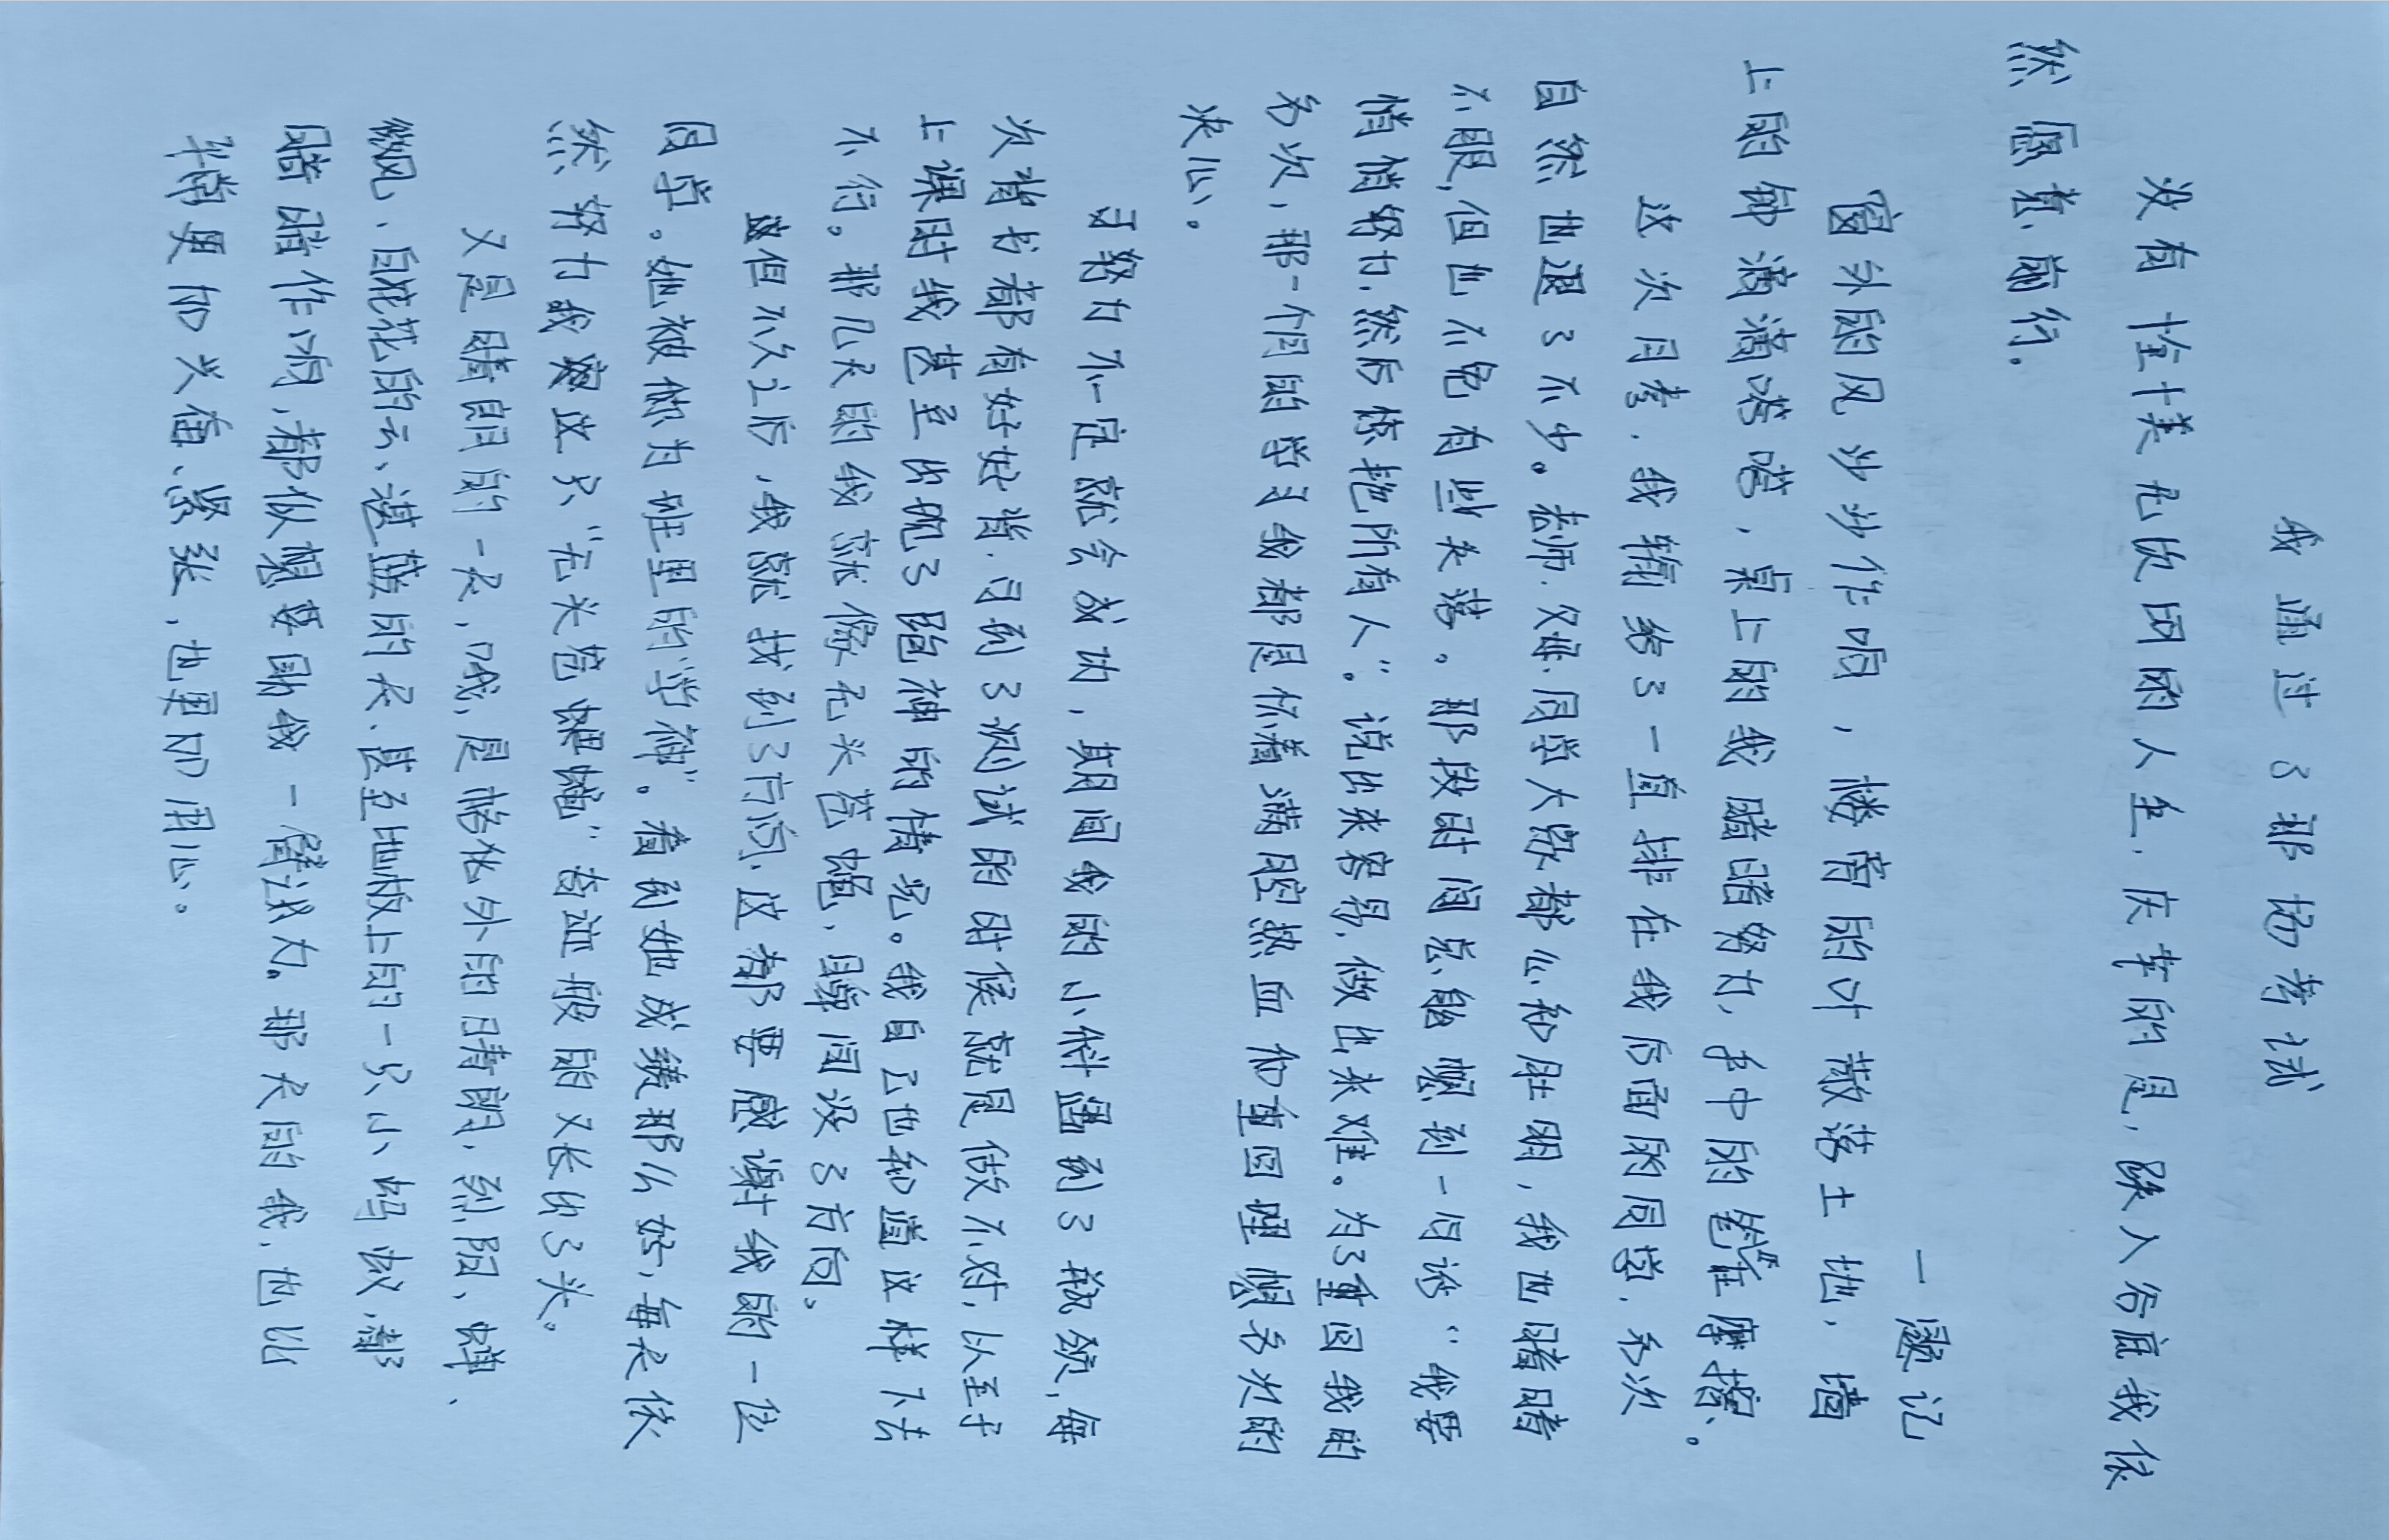 我通过了那场考试
没有十全十美左次团的人生，庆幸的是，跌入谷底我依
然愿意前行。
一题记
窗外的风沙沙作响，楼旁的叶散落土地，墙
上的钟滴滴嗒嗒，桌上的我暗暗努力，手中的笔在摩擦。
这次月考，我输给了一直排在我后面的同学，名次
自然也退了不少。老师、父母、同学大家都么和肚明，我也暗暗
不服，但也不免有些失落。那段时间总能想到一句话“我要
悄悄努力，然后惊艳所有人”。说出来容易，做出来难。为了重回我的
名次，那一个月的学习我都是怀着满腔热血和重回理想名次的
决心。
可努力不一定就会成功，期间我的小测遇到了瓶颈，每
次背书都有好好背，可到了测试的时候就是做不对，以至于
上课时我甚至出现了跑神的情况。我自己也知道这样下去
不行。那几天的我就像无头苍蝇，瞬间没了方向。
但不久之后，我就找到了方向，这都要感谢我的一位
同学。她被称为班里的“学神”。看到她成绩那么好，每天依
然努力我这只“无头苍蝇”者这般的又长出了头。
又是晴朗的一天，哦，是格外的晴朗，烈阳、蝉、
微风、白花花的云、湛蓝的天、甚至地板上的一只小蚂蚁，都
暗暗作响，都似想要助我一臂之力。那天的我，也比
平常更加兴奋、紧张，也更加用心。